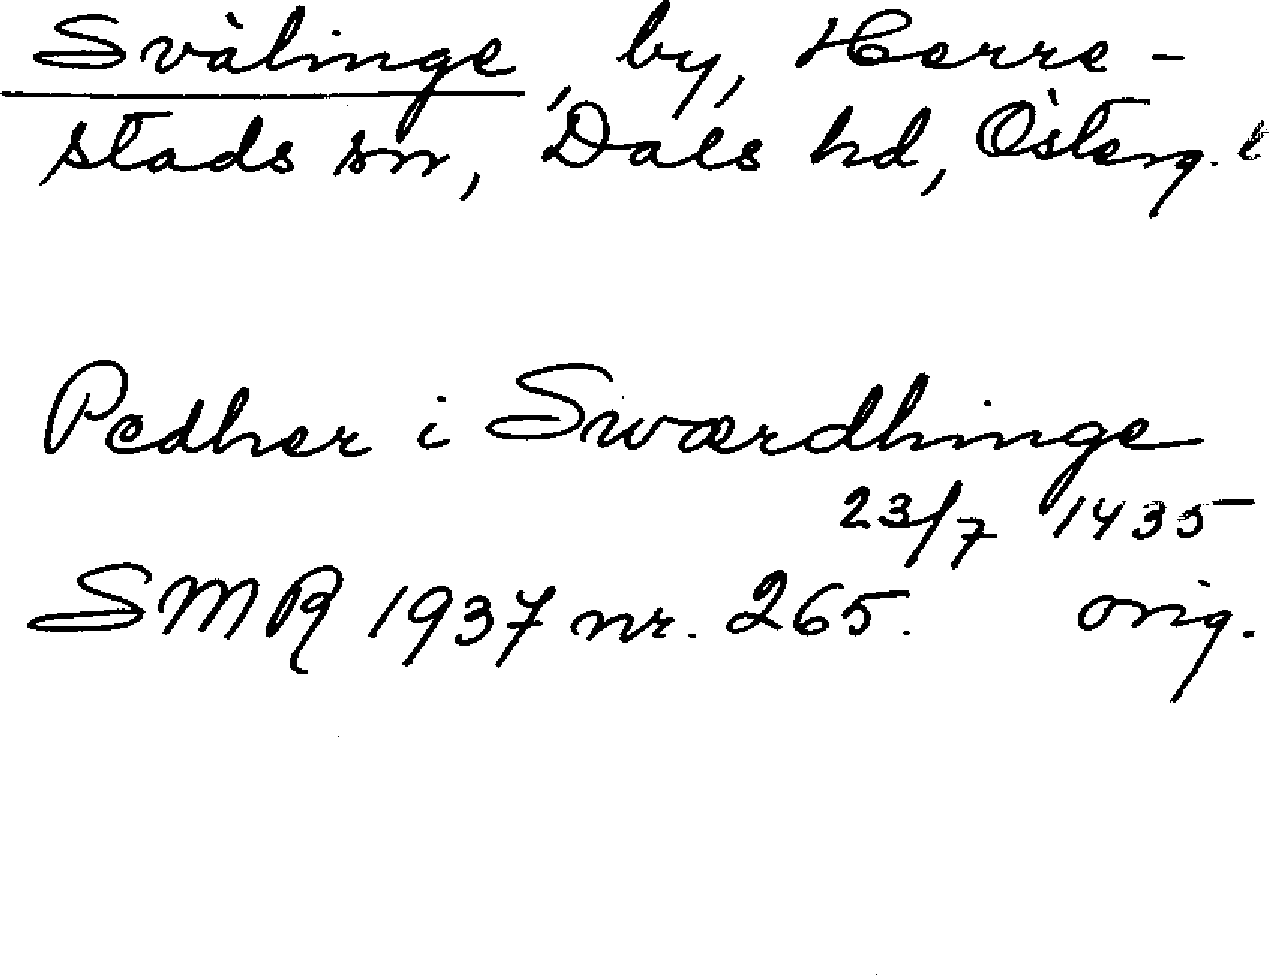 Svälinge, by, Herre-
stads sn, Dals hd, Österg. l
Pedher i Swærdhinge
23/7 1435
SMR 1937 nr. 265. orig.